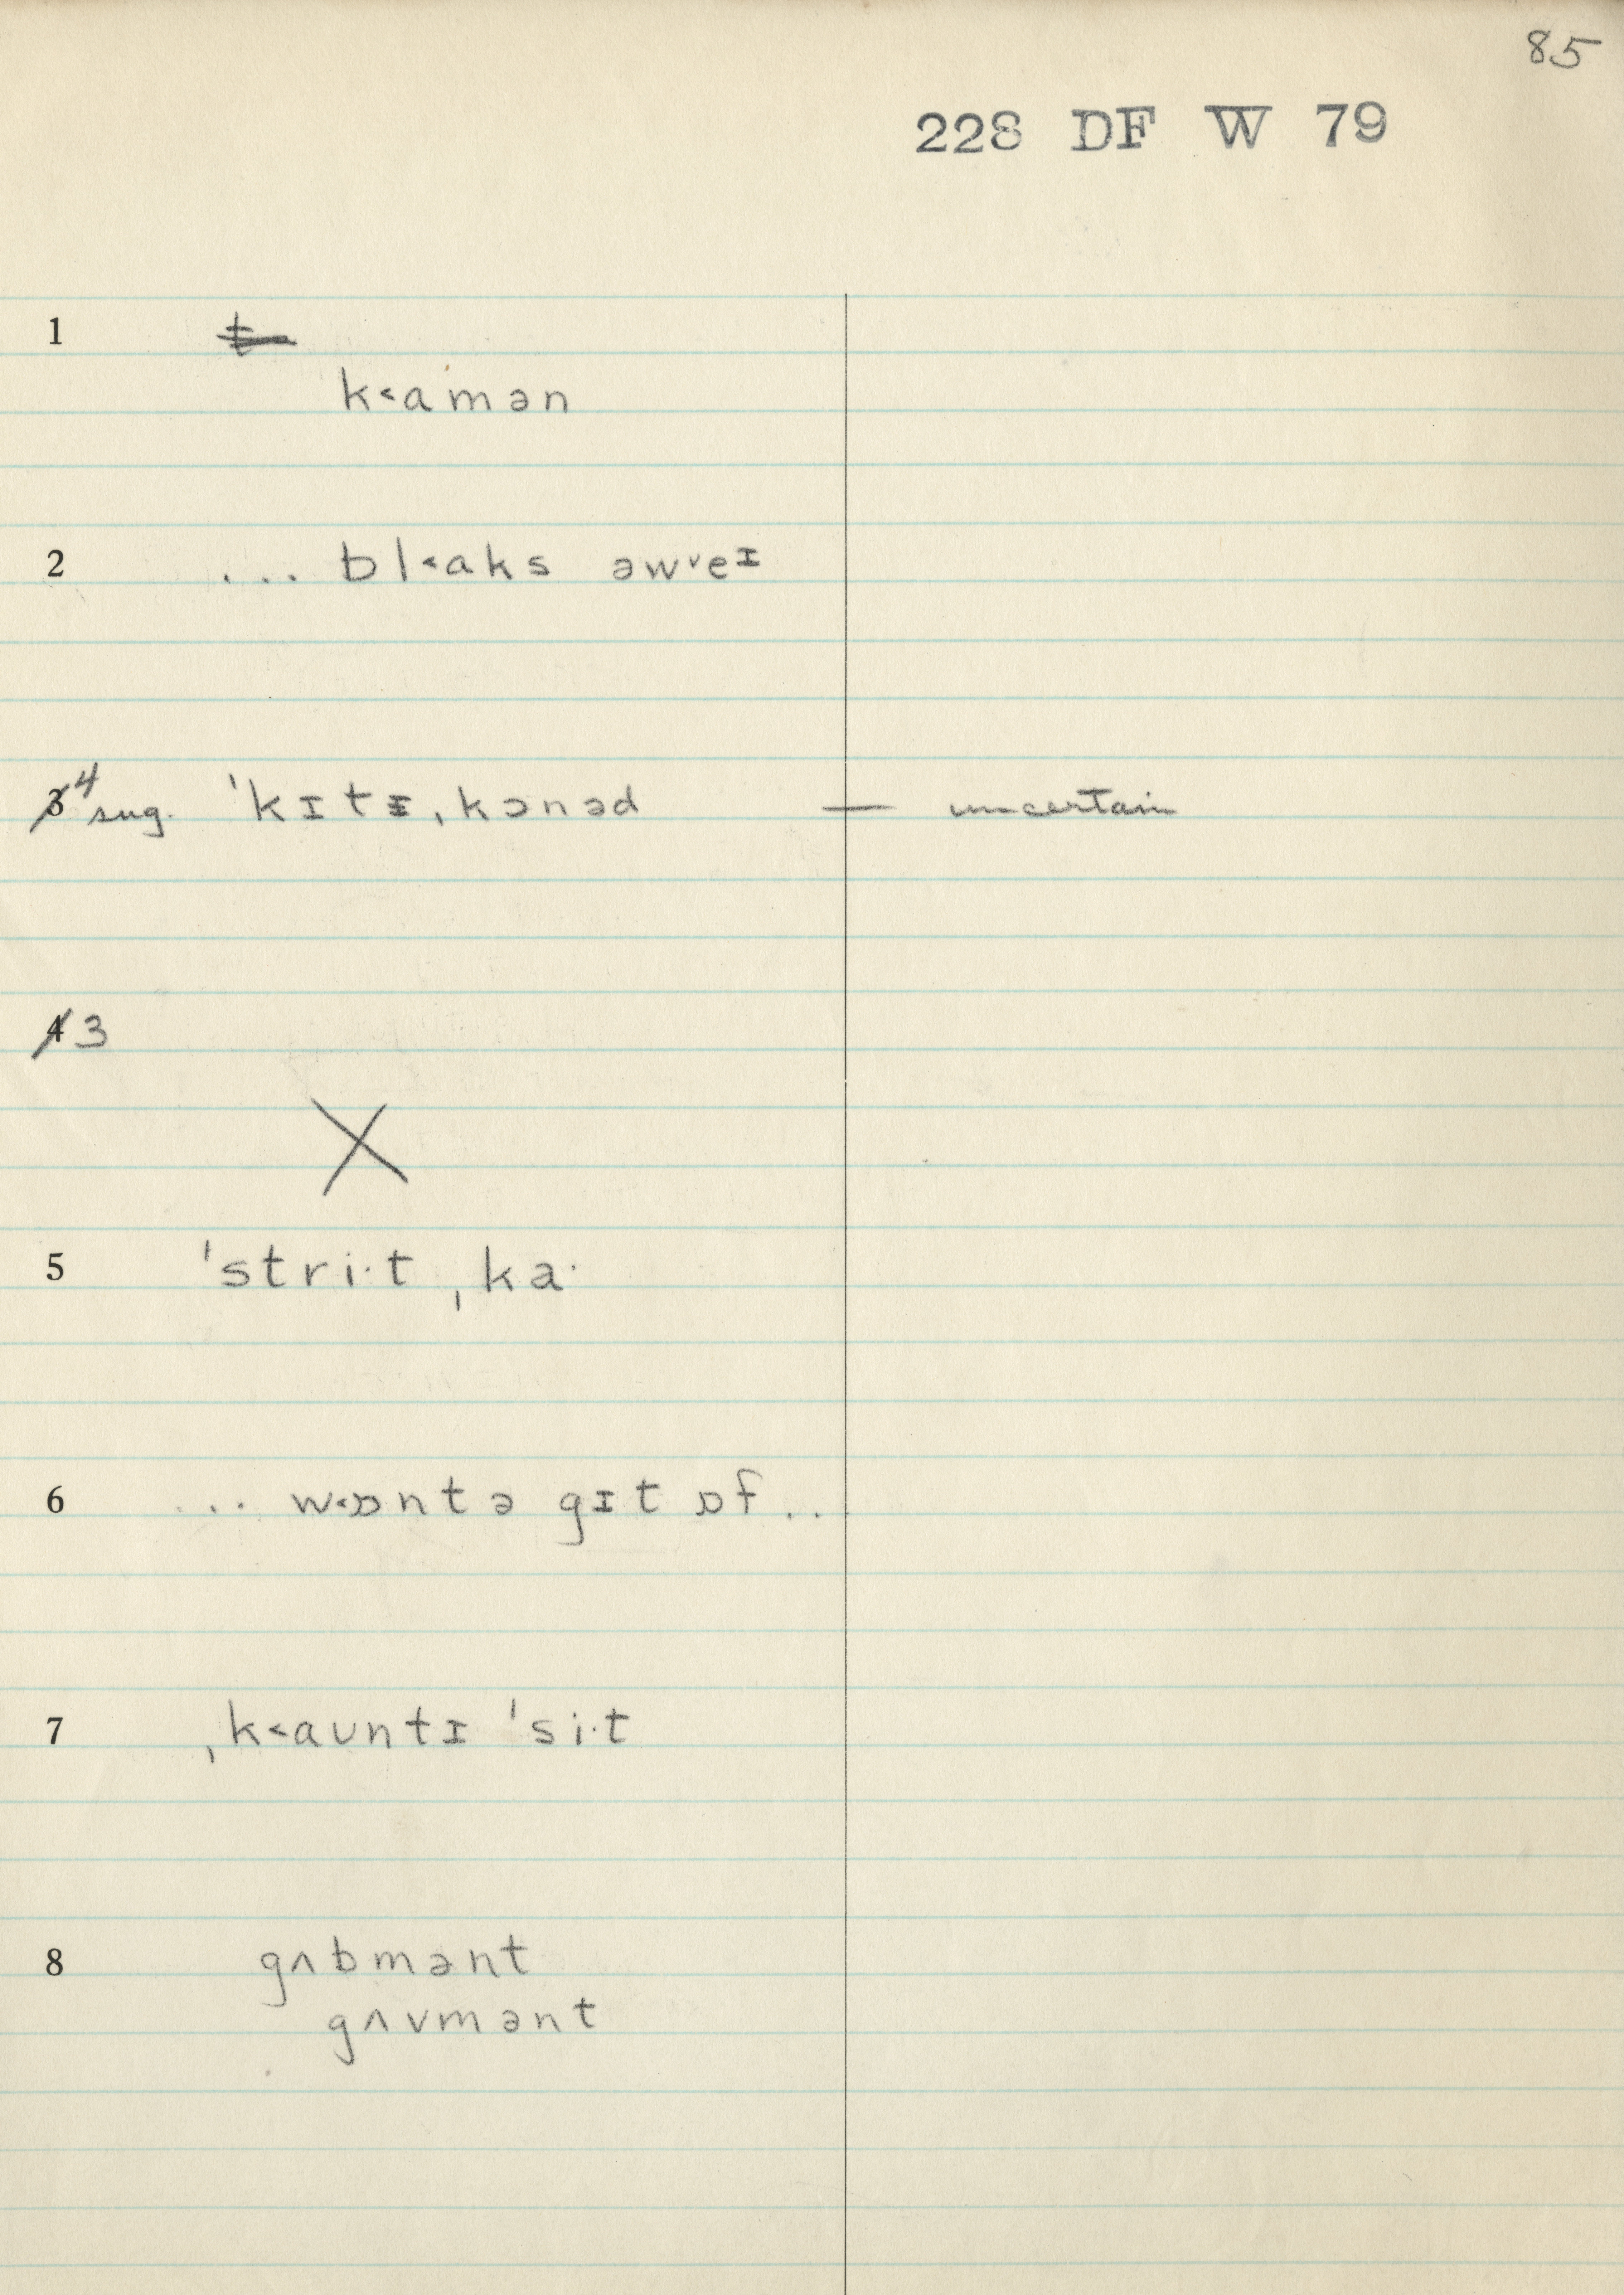 85
228 DF W 79
1
k˂amən
2 ... bl˂aks əw˅eɪ
4 sug. ˈkɪtɪˌkɔnəd — uncertain
3
X
5 ˈstri·t ˌka·
6 ... w˂ɒntə gɪt ɒf ..
7 ˌk˂aʊntɪ ˈsi·t
8 gʌbmənt
gʌvmənt